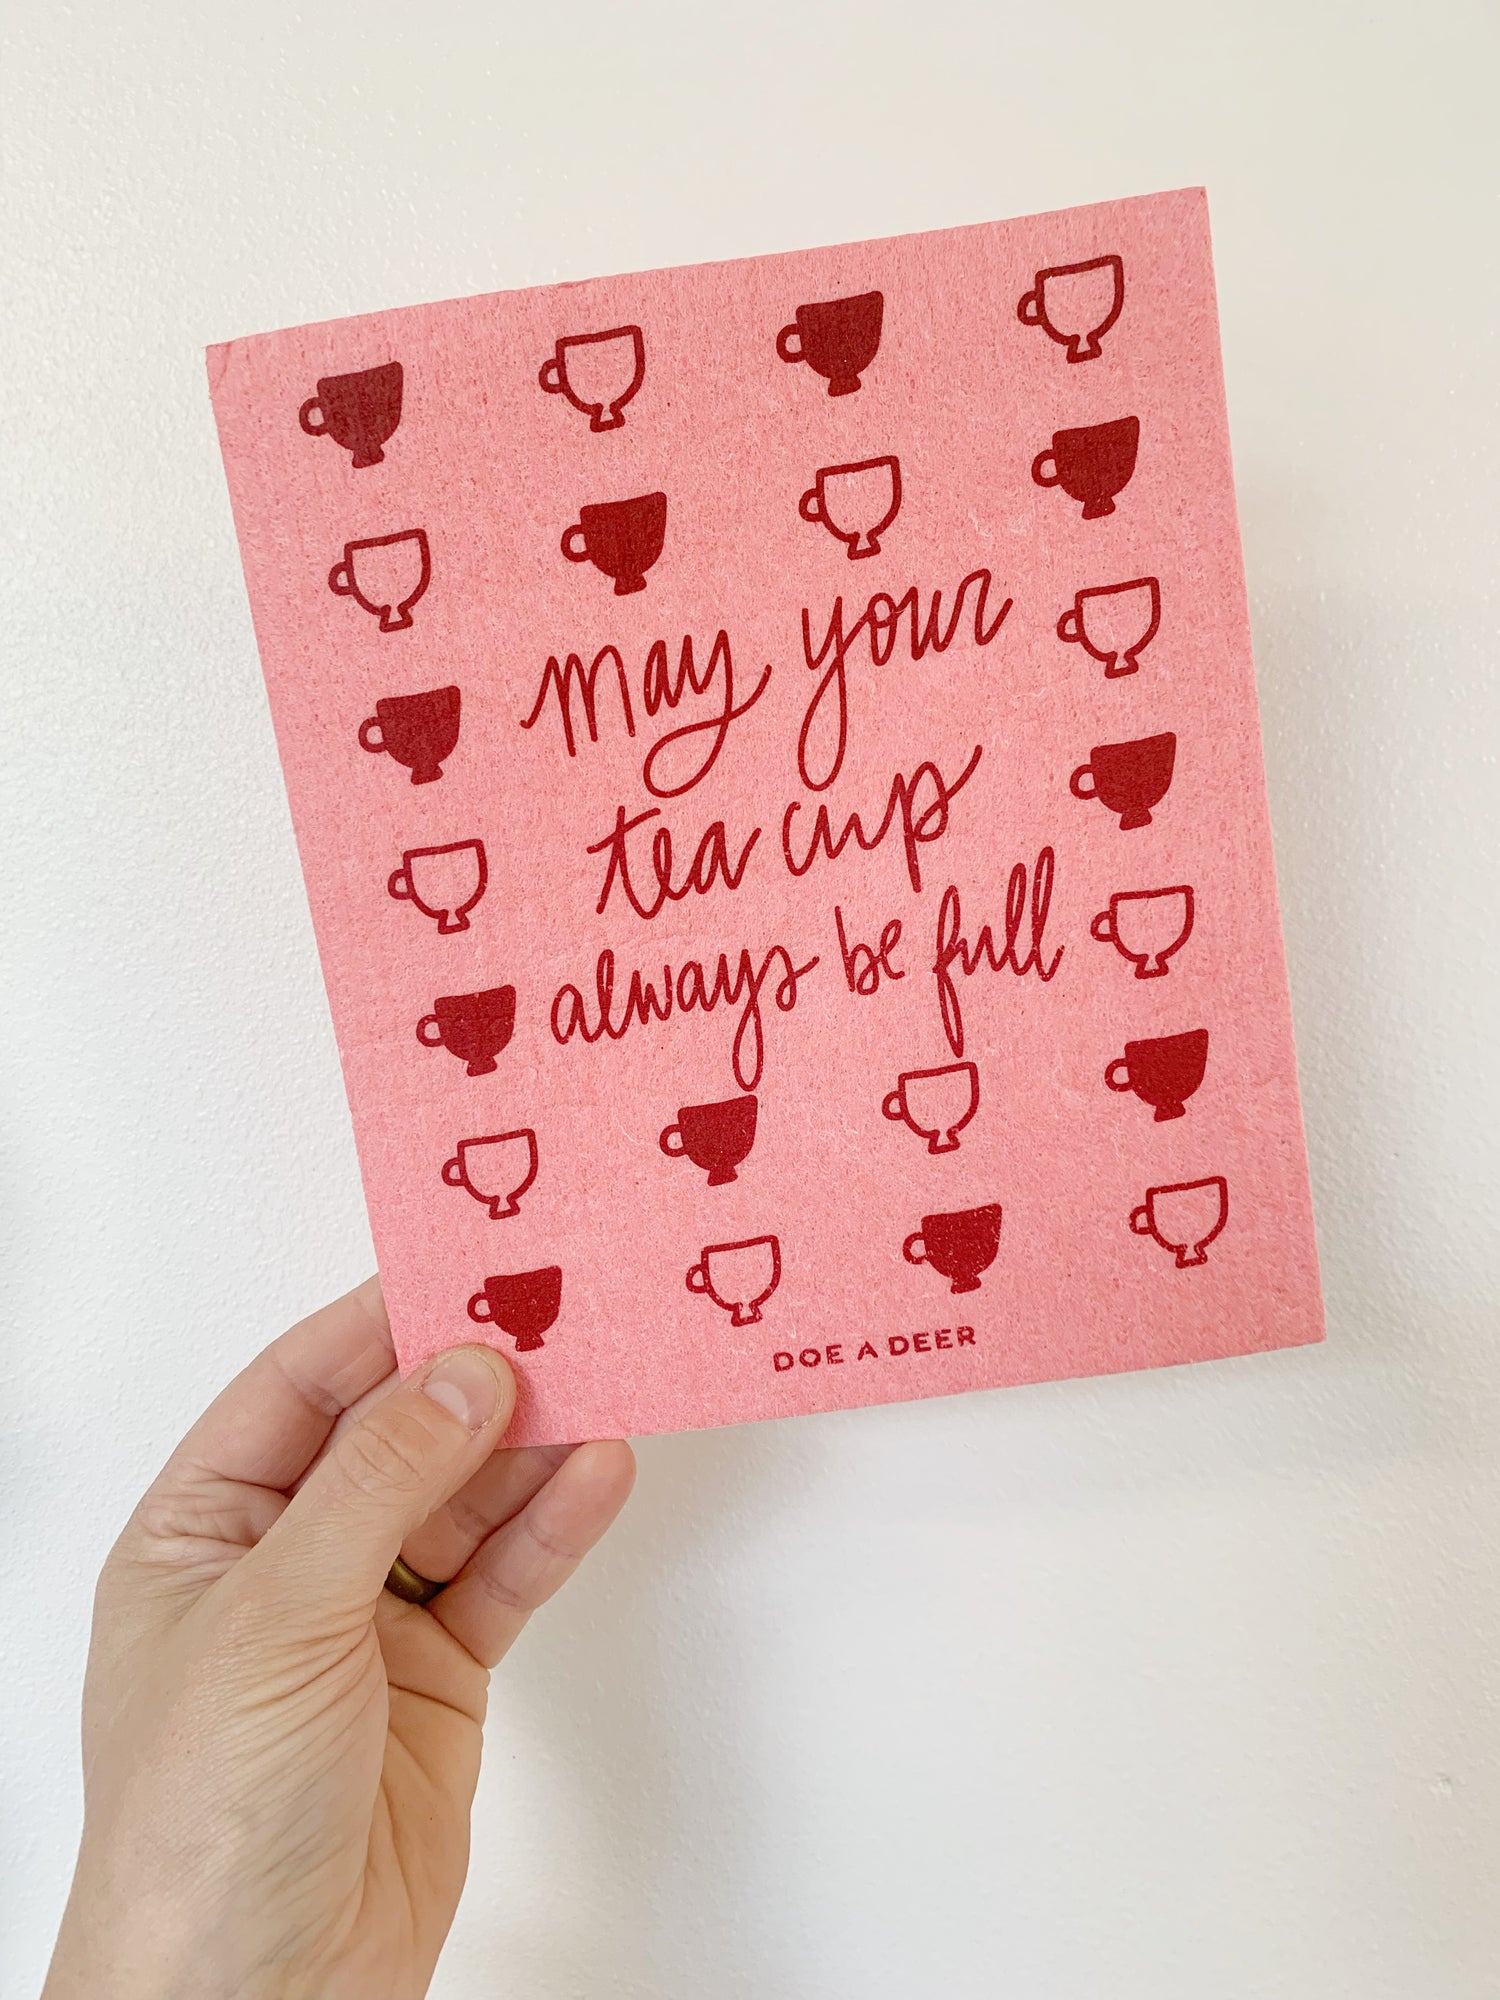 may your
tea cup
always be full
DOE A DEER